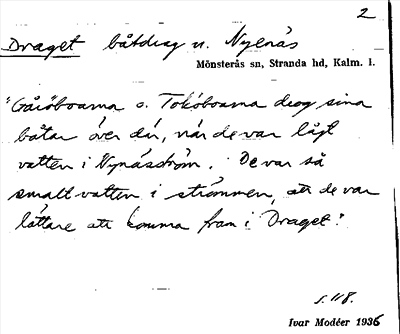 2
Draget båtdrag n. Nynäs
Mönsterås sn, Stranda hd, Kalm. l.
"Gåsöboarna o. Toköboarna drog sina
båtar över där, när de var lågt
vatten i Nynäsström. De var så
smalt vatten i strömmen, att de var
lättare att komma fram i Draget."
s. 118.
Ivar Modéer 1936